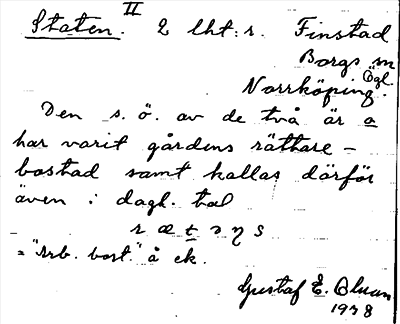 Staten. II 2 lht:r. Finstad
Borgs sn
Ögl.
Norrköping.
Den s. ö. av de två är o
har varit gårdens rättare-
bostad samt kallas därför
även i dagl. tal
r æ t ə η s
= "Arb. bost." å ek.
Gustaf E. Oluan
1938